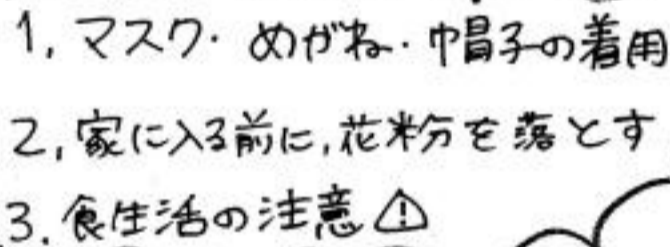 1, マスク・めがね・帽子の着用
2, 家に入る前に, 花粉を落とす
3. 食生活の注意⚠